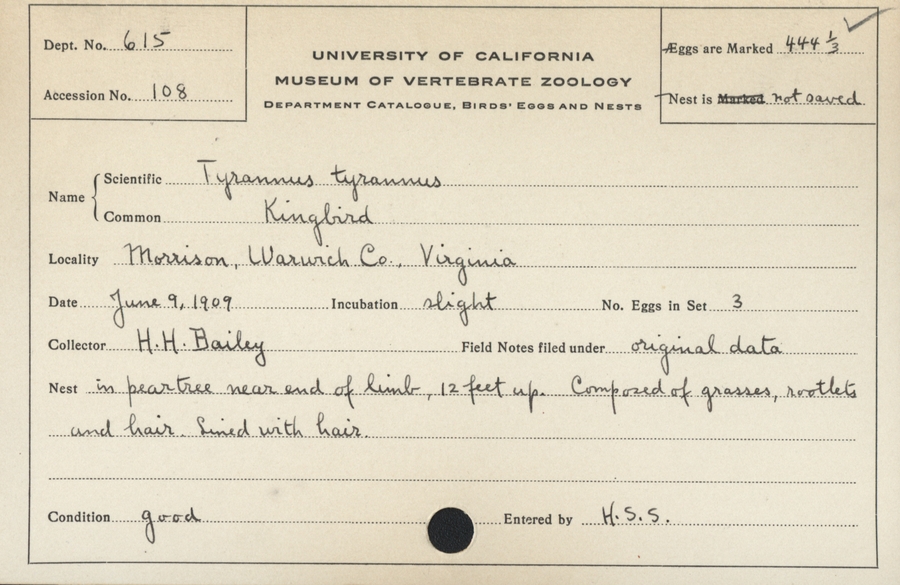 Dept. No. 615
Accession No. 108
UNIVERSITY OF CALIFORNIA
MUSEUM OF VERTEBRATE ZOOLOGY
DEPARTMENT CATALOGUE, BIRDS' EGGS AND NESTS
Eggs are Marked 444 1/3
Nest is Marked not saved
Name { Scientific Tyrannus tyrannus
Common Kingbird
Locality Morrison, Warwich Co., Virginia
Date June 9, 1909 Incubation slight No. Eggs in Set 3
Collector H.H. Bailey Field Notes filed under original data
Nest in peartree near end of limb, 12 feet up. Composed of grasses, rootlets
and hair. Lined with hair.
Condition good Entered by H.S.S.